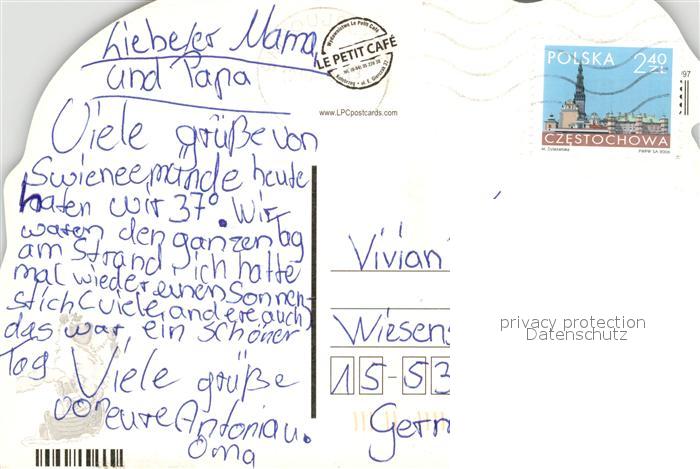 Liebefer Mama
und Papa
Viele grüße von
Swieneemünde heute
haten wir 37°. Wir
waren den ganzen tag
am Strand, ich hatte
mal wieder einen Sonnen-
stich (viele andere auch)
das war ein schöner
Tag Viele grüße
von eure Antonia u.
Oma
Wydawnictwo Le Petit Café
LE PETIT CAFÉ
www.LPCpostcards.com
POLSKA 2,40 zł
'97
CZĘSTOCHOWA
PWPW SA 2006
Vivian
privacy protection
Datenschutz
Wiesens
15-53
Germ